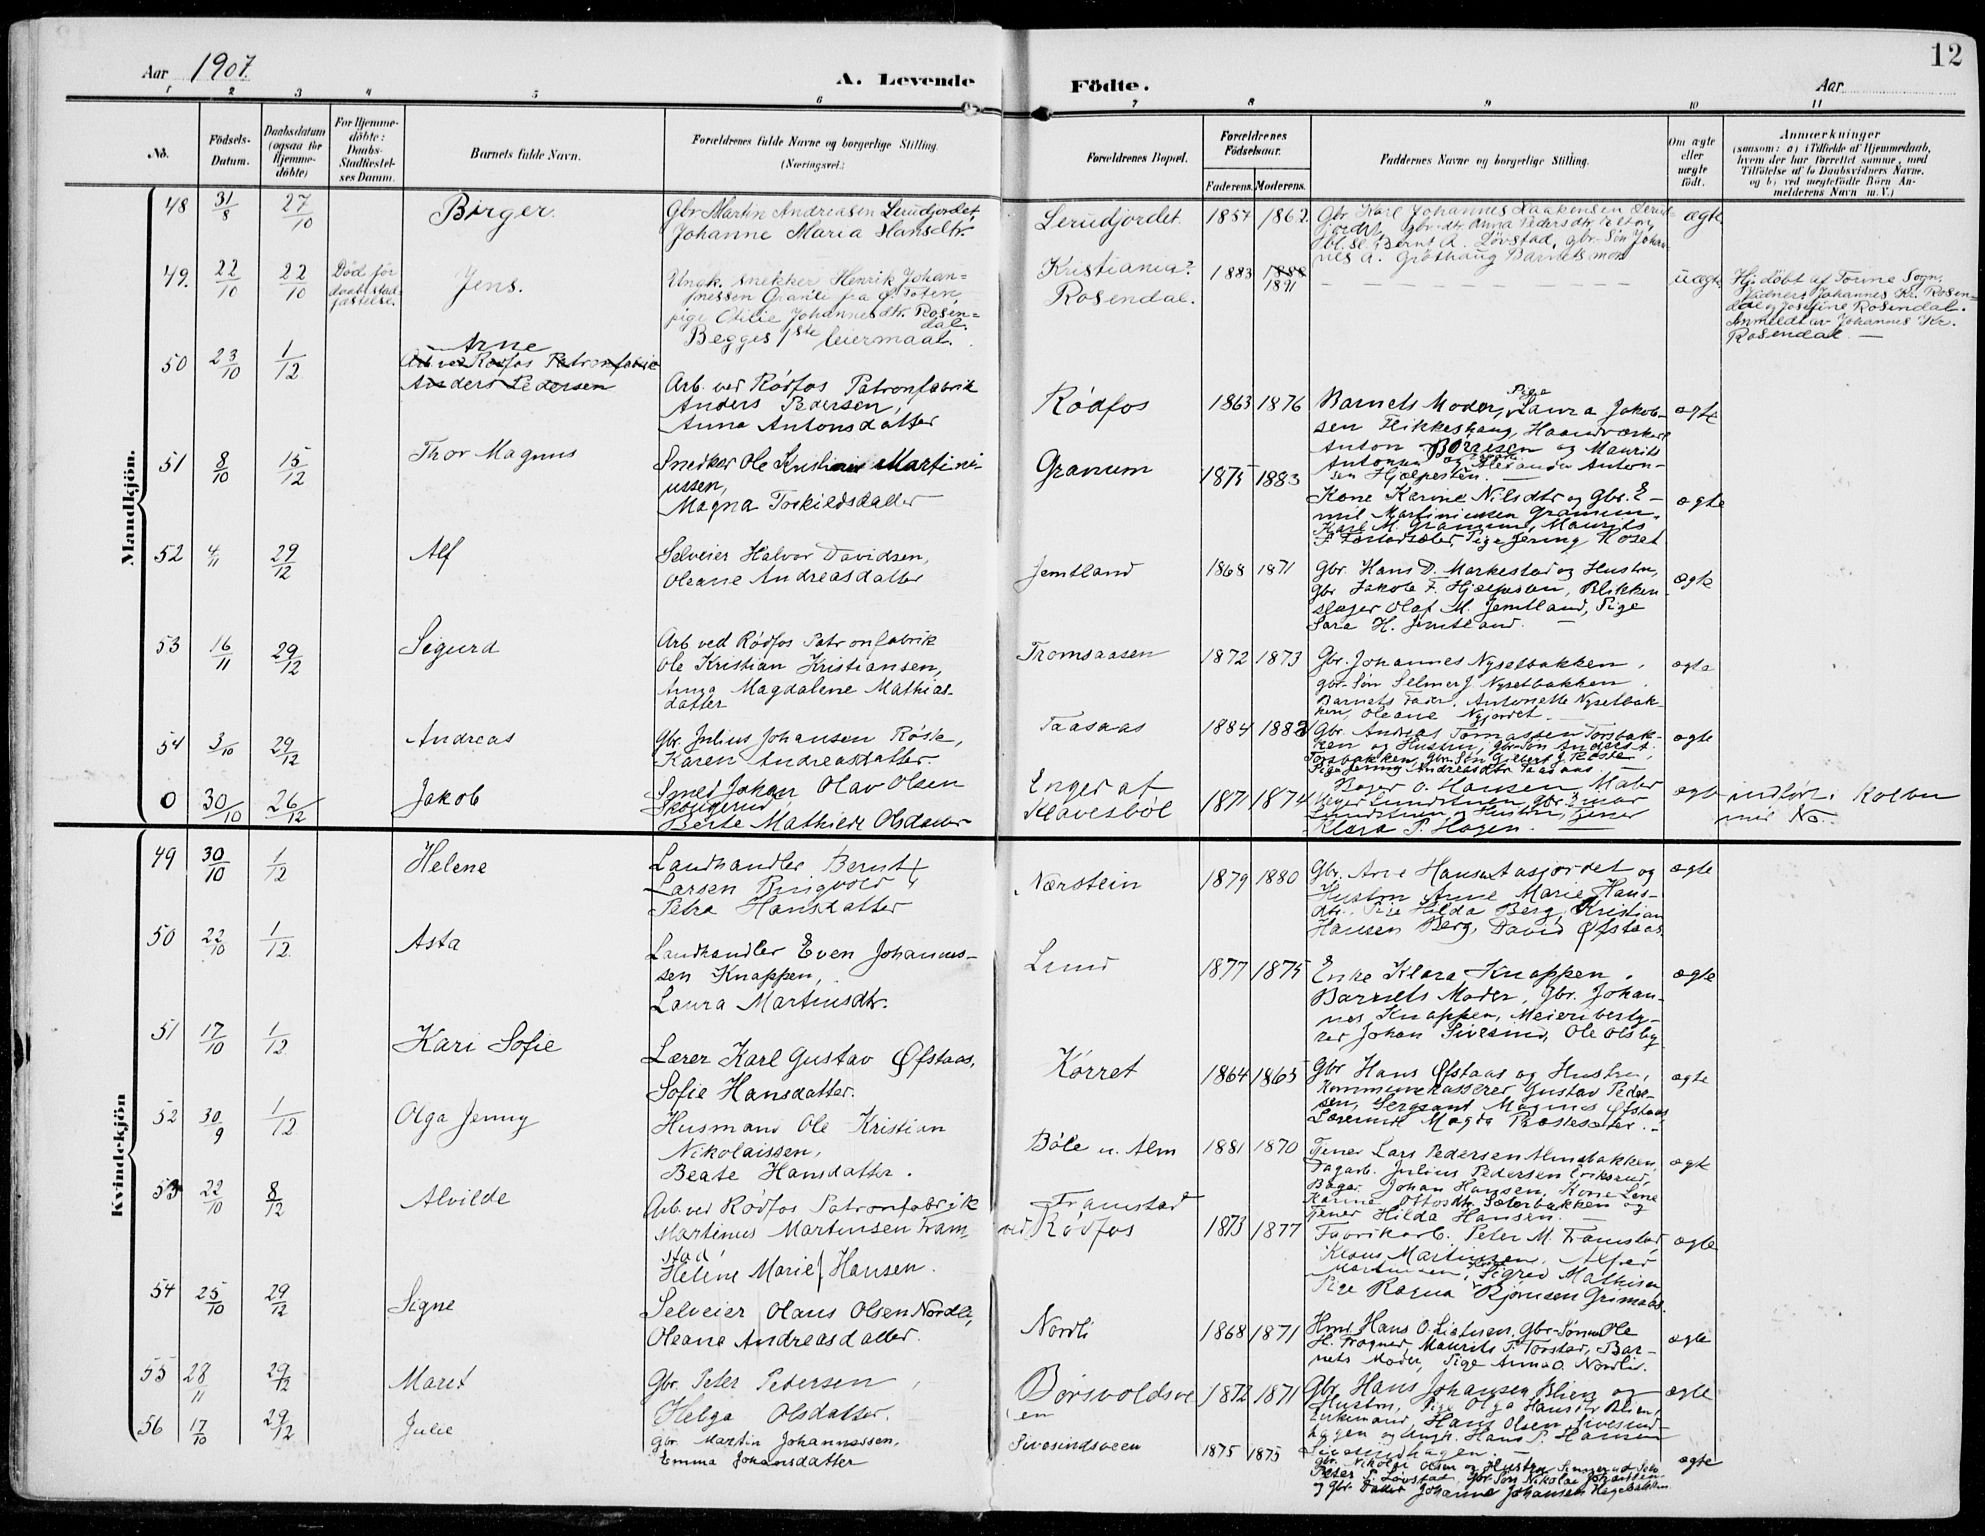 12
Aar 1907.
A. Levende Födte.
Aar
1 2 3 4 5 6 7 8 9 10 11
No.
Födsels-Datum.
Daabsdatum (ogsaa for Hjemme-döbte)
For Hjemme-döbte: Daabs-Stadfæstel-ses Datum.
Barnets fulde Navn.
Forældrenes fulde Navne og borgerlige Stilling. (Næringsvei.)
Forældrenes Bopæl.
Forældrenes Födselsaar.
Faderens. Moderens.
Faddernes Navne og borgerlige Stilling.
Om ægte eller uægte födt.
Anmærkninger
(saasom: a) i Tilfælde af Hjemmedaab,
hvem der har forrettet samme, med
Tilföielse af to Daabsvidners Navne.
og b) ved uægtefödte Börn An-
melderens Navn m. V.)
Mandkjön.
48 31/8 27/10 Birger.
Gbr Martin Andreasen Lerudjordet,
Johanne Maria Hansdtr.
Lerudjordet. 1857 1862
Gbr. Karl Johannes Haakensen Lerud-
ægte
49. 22/10 22/10 Død før daabsstad-fæstelse.
Jens.
Ungk. snekker Henrik Johan-
nessen
pige Otilie Johannesdtr. Rosen-
dal.
Begges 1ste leiermaal.
Kristiania?
Rosendal.
1883 1888 1891
uægte
Hj. døbt af Torine Sogn,
Vidner: Johannes Kr. Rosen-
dal og Josefine Rosendal.
Anmeldt av Johannes Kr.
Rosendal. —
50 23/10 1/12 Arne
Arb. ved Rødfos Patronfabrik
Anders Pedersen
Arb. ved Rødfos Patronfabrik
Anders Pedersen,
Anna Antonsdatter
Rødfos 1863 1876
Barnets Moder, Pige Laura Jakob-
sen Flikkeshaug, Haandværker
Anton Børresen og Maurits
ægte
51 8/10 15/12 Thor Magnus
Snedker Ole Kristian Martini-
ussen,
Magna Torkildsdatter
Granum 1875 1883
Kone Karine Nilsdtr og Gbr. E-
mil Martiniussen Granum,
Karl M. Granum, Maurits
ægte
52 4/11 29/12 Alf
Selveier Halvor Davidsen,
Oleane Andreasdatter
Jemtland 1868 1871
Gbr. Hans D. Markestad og Hustru,
Gbr Jakob F. Hjelpeson, Blikken-
slager Olaf M. Jemtland, Pige
Sara H. Jemtland. —
ægte
53 16/11 29/12 Sigurd
Arb ved Rødfos Patronfabrik
Ole Kristian Kristiansen,
Anna Magdalene Mathias-
datter
Tromsaasen 1872 1873
Gbr. Johannes Nysetbakken,
gbr-Søn Selmer J. Nysetbakken.
Barnets Fader, Antonette Nysetbak-
ken, Oleane Nyjordet. —
ægte
54 3/10 29/12 Andreas
Gbr. Julius Johansen Røste,
Karen Andreasdatter
Taasaas 1884 1882
Gbr. Andreas Tomassen Torsbak-
ken og Hustru, gbr-Søn Anders A.
Torsbakken, Gbr-Søn Gilbert J. Røste,
Pige Jenny Andreasdtr Taasaas —
ægte
0 30/10 26/12 Jakob
Smed Johan Olav Olsen
Skougerud,
Berte Mathilde Olsdatter
Enger af
Klavesbøl 1871 1874
Klara P. Hagen. —
ægte
indført i Kolbu
med No
Kvindekjön
49 30/10 1/12 Helene
Landhandler Bernt
Larsen Ringvold,
Petra Hansdatter
Nærstein 1879 1880
Gbr. Arne Hansen Aasjordet og
Hustru Anne Marie Hans-
dtr. Pige Hilda Berg, Kristian
Hansen Berg, David Øfstaas.
ægte
50 22/10 1/12. Asta
Landhandler Even Johannes-
sen Knappen,
Laura Martinsdtr.
Lund 1877 1875
Enke Klara Knappen,
Barnets Moder, Gbr. Johan-
nes Knappen, Meieribesty-
rer Johan Sivesind, Ole Olsby
ægte
51 17/10 1/12 Kari Sofie
Lærer Karl Gustav Øfstaas,
Sofie Hansdatter.
Kørret 1864 1865
Gbr Hans Øfstaas og Hustru,
Kommunekasserer Gustav Peder-
sen, Sergeant Magnus Øfstaas,
Lærerinde Magda
ægte
52 30/9 1/12 Olga Jenny
Husmand Ole Kristian
Nikolaissen,
Beate Hansdatter.
Bøle u. Alm 1881 1870
Tjener Lars Pedersen Almsbakken,
Dagarb. Julius Pedersen Eriksrud,
Bager Johan Hansen, Kone Lene
Karine Ottosdtr. Sæterbakken og
Tjener Hilda Hansen. —
ægte
53 22/10 8/12 Alvilde
Arb. ved Rødfos Patronfabrik
Martinus Martinsen Fram-
stad,
Helene Marie Hansen.
Framstad
ved Rødfos 1873 1877
Fabrikarb. Peter M. Framstad,
Klaus Martinsen, Alfred
Martinsen, Kone Sigrid Mathisen,
Pige Ragna Bjørnsen Grimaas.
ægte
54 25/10 29/12 Signe
Selveier Olaus Olsen Nordli,
Oleane Andreasdatter.
Nordli 1868 1871
H. Frogner, Maurits P. Torstad, Bar-
nets Moder, Pige Anna O. Nordli.
ægte
55 28/11 29/12 Maret
Gbr. Peter Pedersen,
Helga Olsdatter.
Børsvoldsve-
en 1872 1871
Gbr. Hans Johansen Blien og
Hustru, Pige Olga Hansdtr Blien,
Hans Olsen Sivesind-
hagen og Ungk. Hans P. Hansen
Sivesindhagen. —
ægte
56 17/10 29/12 Julie
Gbr. Martin Johannessen,
Emma Johansdatter
Sivesindsveen 1875 1875
Gbr. Nikolai Olsen og Hustru
Peter P. Løvstad, Gbr. Søn Nikolai Johansen
og Gbr. Datter Johanne Johansen
ægte